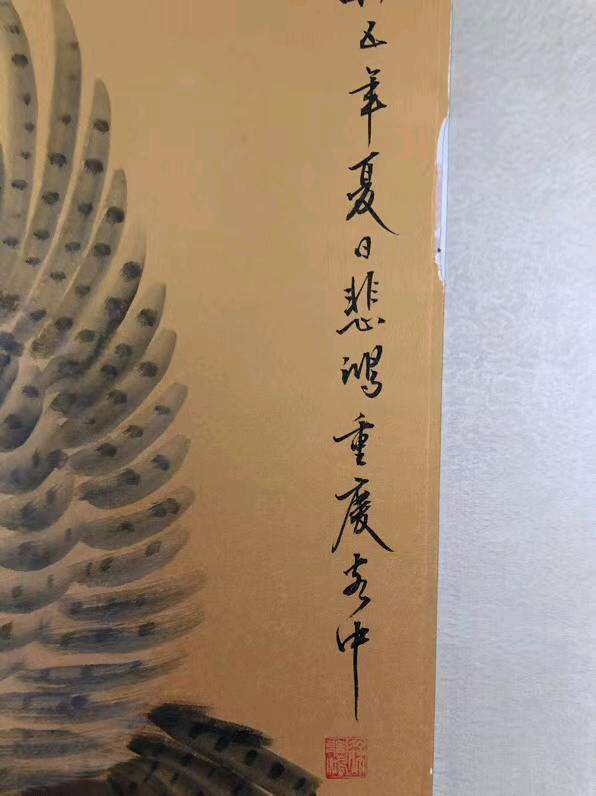 五年夏日悲鸿重慶客中